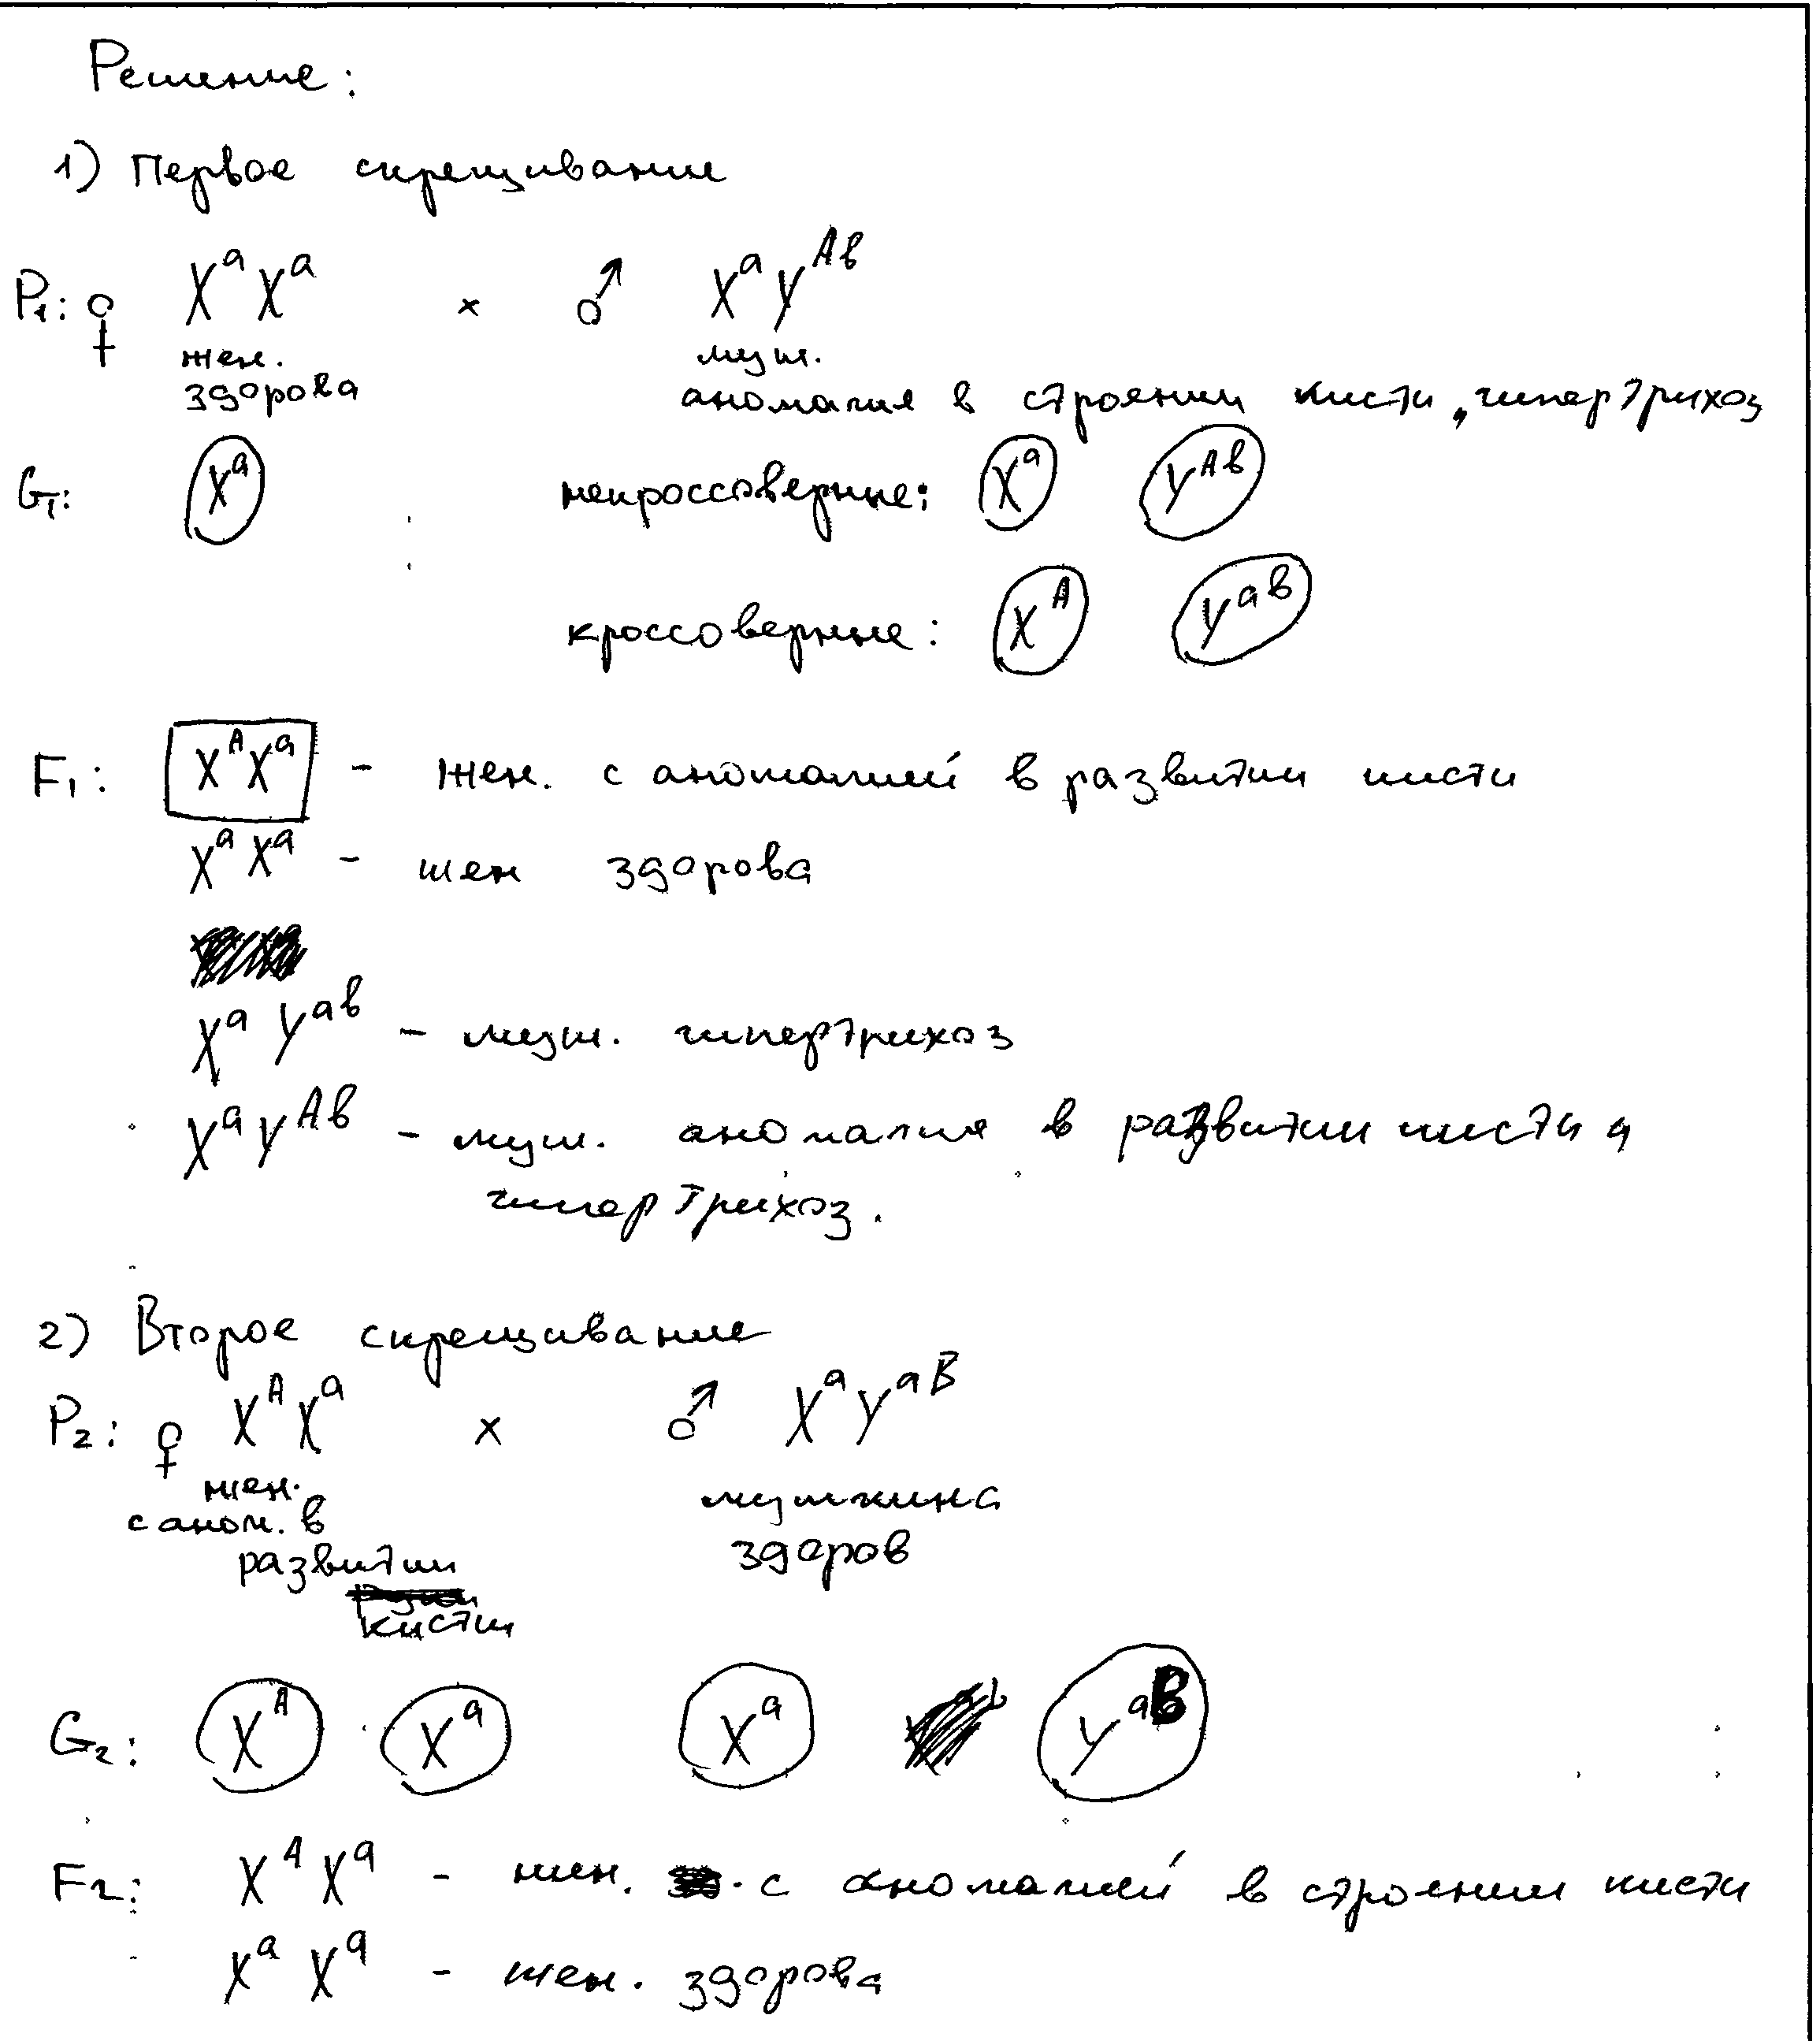 Решение:
1) Первое скрещивание
P₁: ♀ XᵃXᵃ × ♂ XᵃYᴬᵇ
жен. муж.
здорова аномалия в строении кисти, гипертрихоз
G₁: Xᵃ некроссоверные: Xᵃ Yᴬᵇ
кроссоверные: Xᴬ Yᵃᵇ
F₁: XᴬXᵃ - жен. с аномалией в развитии кисти
XᵃXᵃ - жен здорова
XᵃYᵃᵇ - муж. гипертрихоз
XᵃYᴬᵇ - муж. аномалия в развитии кисти и
гипертрихоз.
2) Второе скрещивание
P₂: ♀ XᴬXᵃ × ♂ XᵃYᵃᴮ
жен. мужчина
с аном. в здоров
развитии
кисти
G₂: Xᴬ Xᵃ Xᵃ Yᵃᴮ
F₂: XᴬXᵃ - жен. с аномалией в строении кисти
XᵃXᵃ - жен. здорова